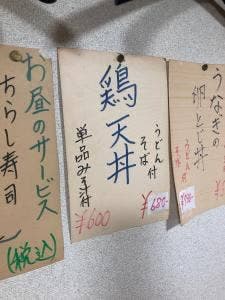 うなぎの
卵とじ丼
うどん付
鶏天丼
うどん付
そば
¥680-
単品みそ汁付
¥600
お昼のサービス
(税込)
ちらし寿司